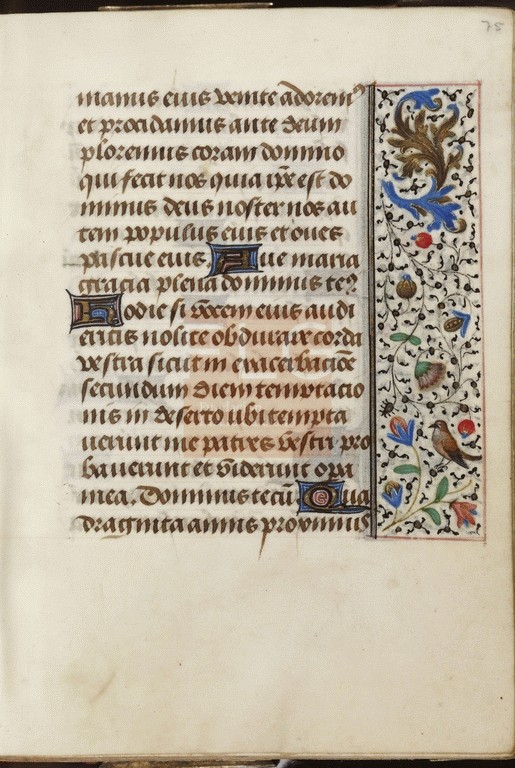 75
manus eius venite adorem9
et procidamus ante deum
ploremus coram domino
qui fecit nos quia ip̄e est do
minus deus noster nos au
tem populus eius et oues
pascue eius. Aue maria
gracia plena dominus te⁊
Hodie si vocem eius audi
eritis nolite obdurare corda
vestra sicut in exacerbaciōe
secundum diem temptacio
nis in deserto ubi tempta
uerunt me patres vestri pro
bauerunt et viderunt opa
mea. Dominus tecū Qua
draginta annis proximus